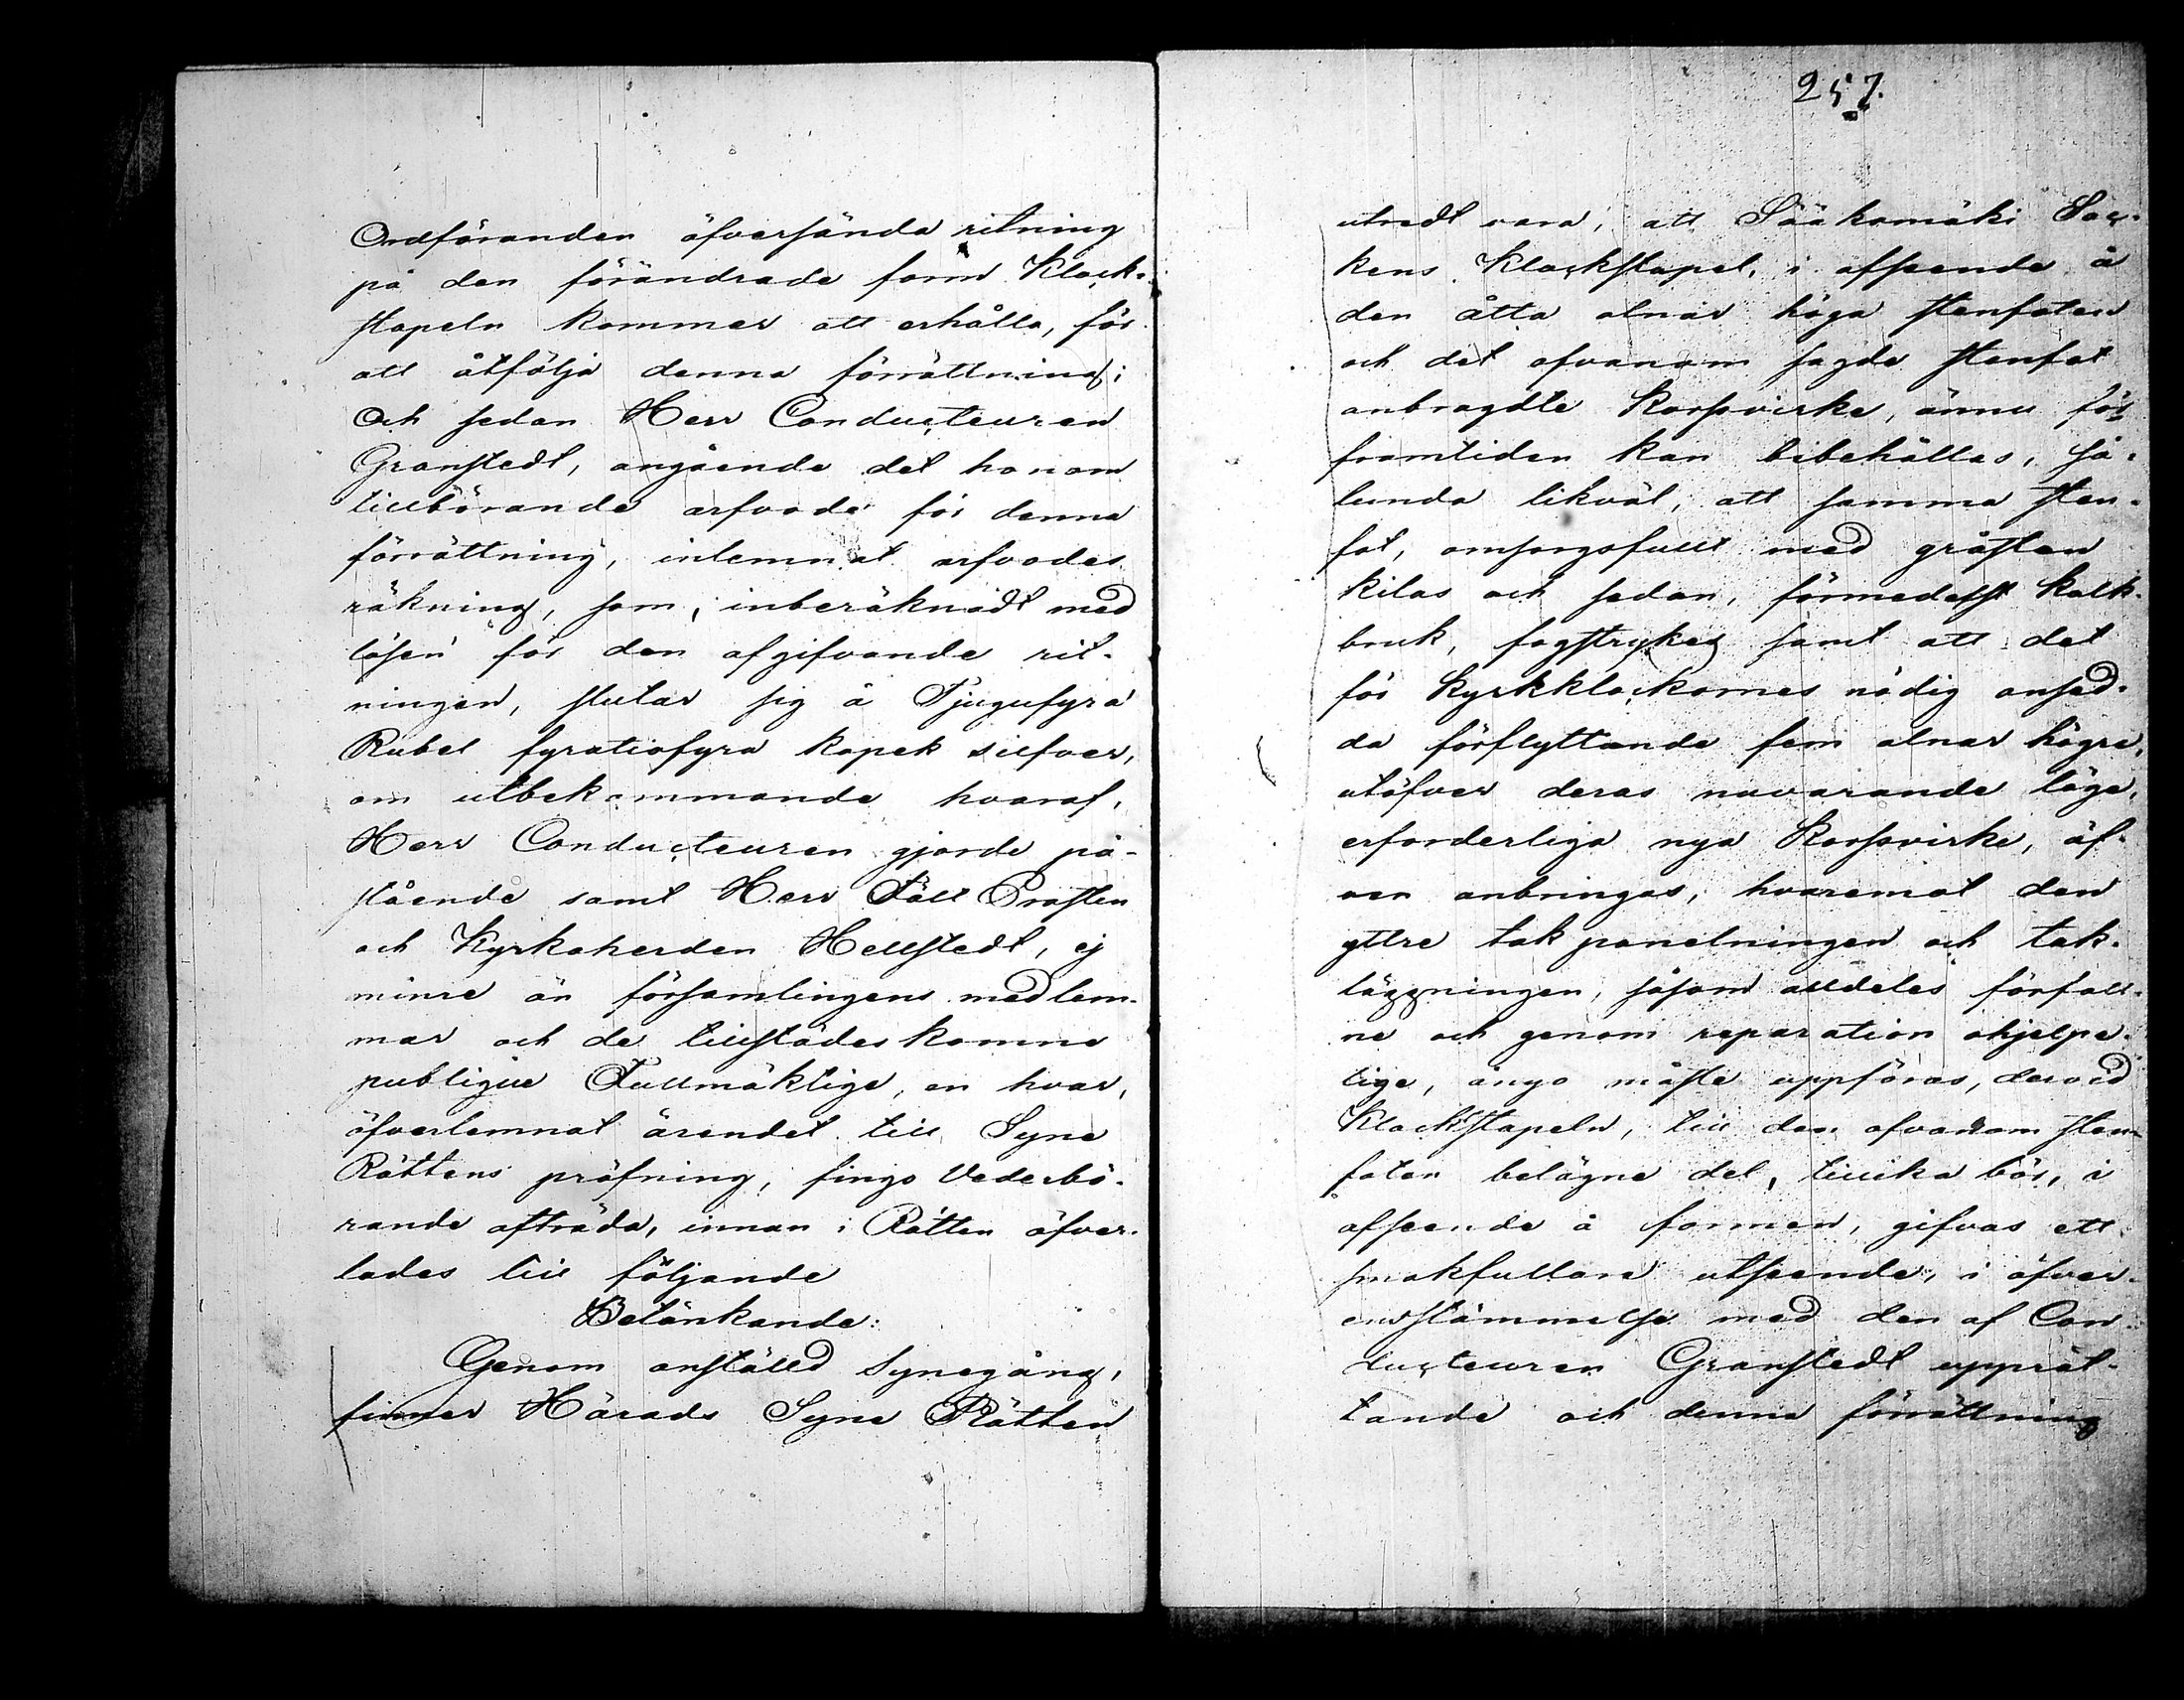 Ordföranden öfversända ritning
på den förändrade form Klock-
stapeln kommer att erhålla, för
att åtfölja denna förrättning;
Och sedan Herr Conducteuren
Granstedt, angående det honom
tillbörande arfvode för denna
förrättning, inlemnat arfvodes
räkning, som, inberäknadt med
lösen för den afgifvande rit-
ningen, slutar sig å Tjugufyra
Rubel fyratiofyra kopek silfver,
om utbekommande hvaraf,
Herr Conducteuren gjorde på-
stående samt Herr Fält Prosten
och Kyrkoherden Hellstedt, ej
minre än församlingens medlem-
mar och de tillstädes komne
publique Fullmäktige, en hvar,
öfverlemnat ärendet till Syne
Rättens pröfning, fingo Vederbö-
rande afträda, innan i Rätten öfver-
lades till följande
Betänkande:
Genom anställd Synegång,
finner Härads Syne Rätten
257.
utredt vara, att Jääkomäki Soc-
kens Klockstapel, i afseende å
den åtta alnar höga stenfoten
och det ofvanom sagde stenfot
anbragdte Korssvirke, ännu för
framtiden kan bibehållas, så-
lunda likväl, att samma sten-
fot, omsorgsfullt med gråsten
kilas och sedan, förmedelst kalk-
bruk, fogstrykes samt att det
för Kyrkklockornas nödig ansed-
da förflyttande fem alnar högre,
utöfver deras nuvarande läge,
erforderliga nya Korssvirke, äf-
ven anbringas, hvaremot den
yttre takpanelningen och tak-
läggningen, såsom alldeles förfall-
ne och genom reparation ohjelpe-
lige, ånyo måste uppföras, dervid
Klockstapeln, till den ofvanom sten-
foten belägne del, tillika bör, i
afseende å formen, gifvas ett
smakfullare utseende, i öfver-
ensstämmelse med den af Con-
ducteuren Granstedt upprät-
tande och denna förrättning